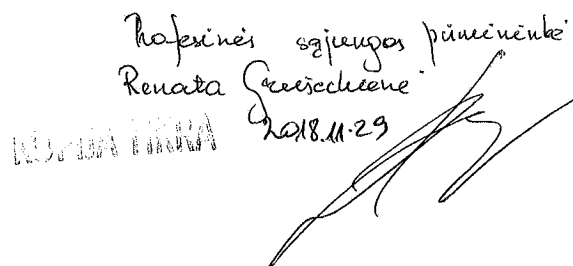 Profesinės sąjungos pirmininkė
Renata
KOPIJA TIKRA 2018.11.29